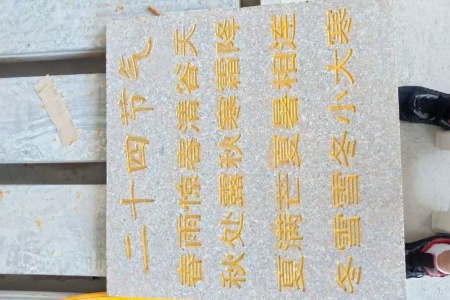 二十四节气
春雨惊春清谷天
秋处露秋寒霜降
夏满芒夏暑相连
冬雪雪冬小大寒